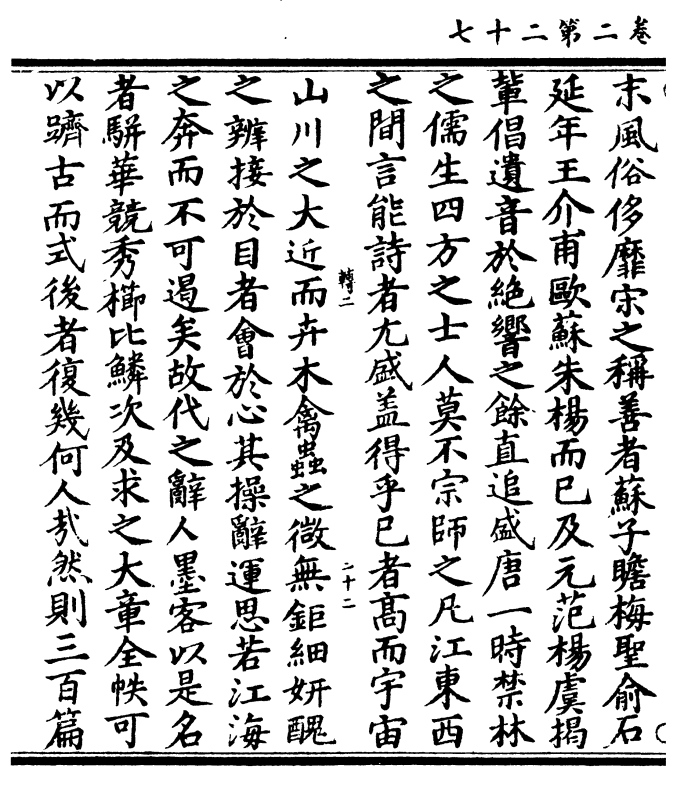 卷二第二十七
末風俗侈靡宋之稱善者蘇子瞻梅聖俞石
延年王介甫歐蘇朱楊而已及元范楊虞揭
輩倡遺音於絶響之餘直追盛唐一時禁林
之儒生四方之士人莫不宗師之凡江東西
之間言能詩者尤盛盖得乎已者高而宇宙
轉二
二十二
山川之大近而卉木禽蟲之微無鉅細妍醜
之辨接於目者會於心其操辭運思若江海
之奔而不可遏矣故代之辭人墨客以是名
者駢華競秀櫛比鱗次及求之大章全帙可
以躋古而式後者復幾何人㢤然則三百篇